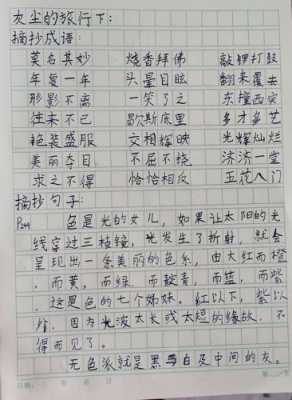 灰尘的旅行下:
摘抄成语:
莫名其妙 烧香拜佛 敲锣打鼓
年复一年 头晕目眩 翻来覆去
形影不离 一笑了之 东撞西突
往来不已 歇斯底里 多才多艺
艳装盛服 交相辉映 光辉灿烂
美丽夺目 不屈不挠 济济一堂
求之不得 恰恰相反 五花八门
摘抄句子:
色是光的女儿,如果让太阳的光
线穿过三棱镜,光发生了折射,就会
呈现出一条美丽的色系,由大红而橙
,而黄,而绿,而靛青,而蓝,而紫
,这是色的七个姊妹。红以下,紫以
外,因为光波太长或太短的缘故,不
得而见了。
无色派就是黑与白及中间的灰。
日期: 月 日